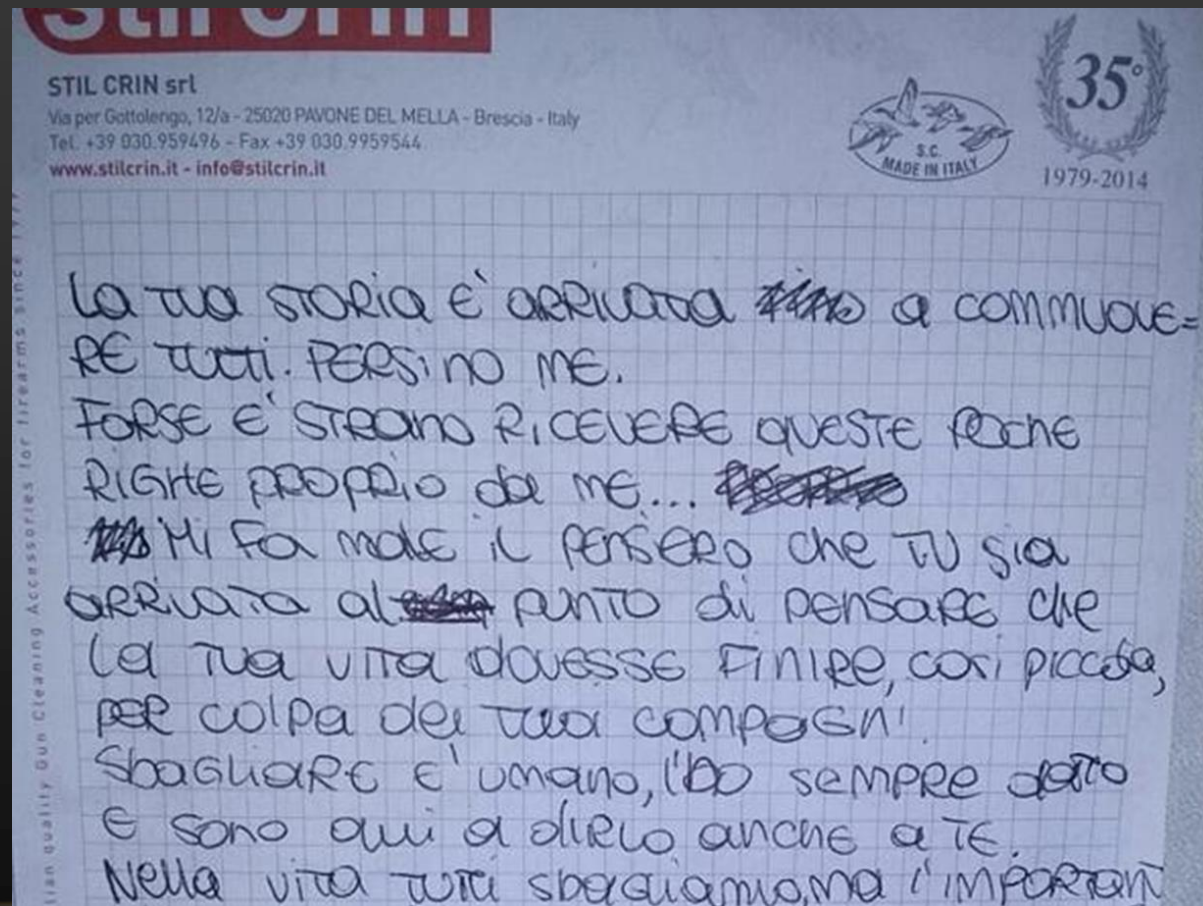 stil crin
STIL CRIN srl
Via per Gottolengo, 12/a - 25020 PAVONE DEL MELLA - Brescia - Italy
Tel. +39 030.959496 - Fax +39 030.9959544
www.stilcrin.it - info@stilcrin.it
S.C.
MADE IN ITALY
35°
1979-2014
lian quality Gun Cleaning Accessories for firearms since 197
La TUA STORIA E' ARRIVATA a COMMUOVE=
RE TUTTI. PERSINO ME.
FORSE E' STRANO RICEVERE QUESTE POCHE
RIGHE PROPRIO da ME...
Mi Fa male il PENSIERO che TU sia
ARRIVATA al PUNTO di PENSARE che
La TUA VITA dovesse FINIRE, così piccola,
PER colpa dei Tuoi COMPAGNI.
SbaGLIARE E' UMANO, l'ho SEMPRE detto
E SONO qui a dirlo anche a TE.
Nella VITA TUTTI sbagliamo, ma l'IMPORTAN